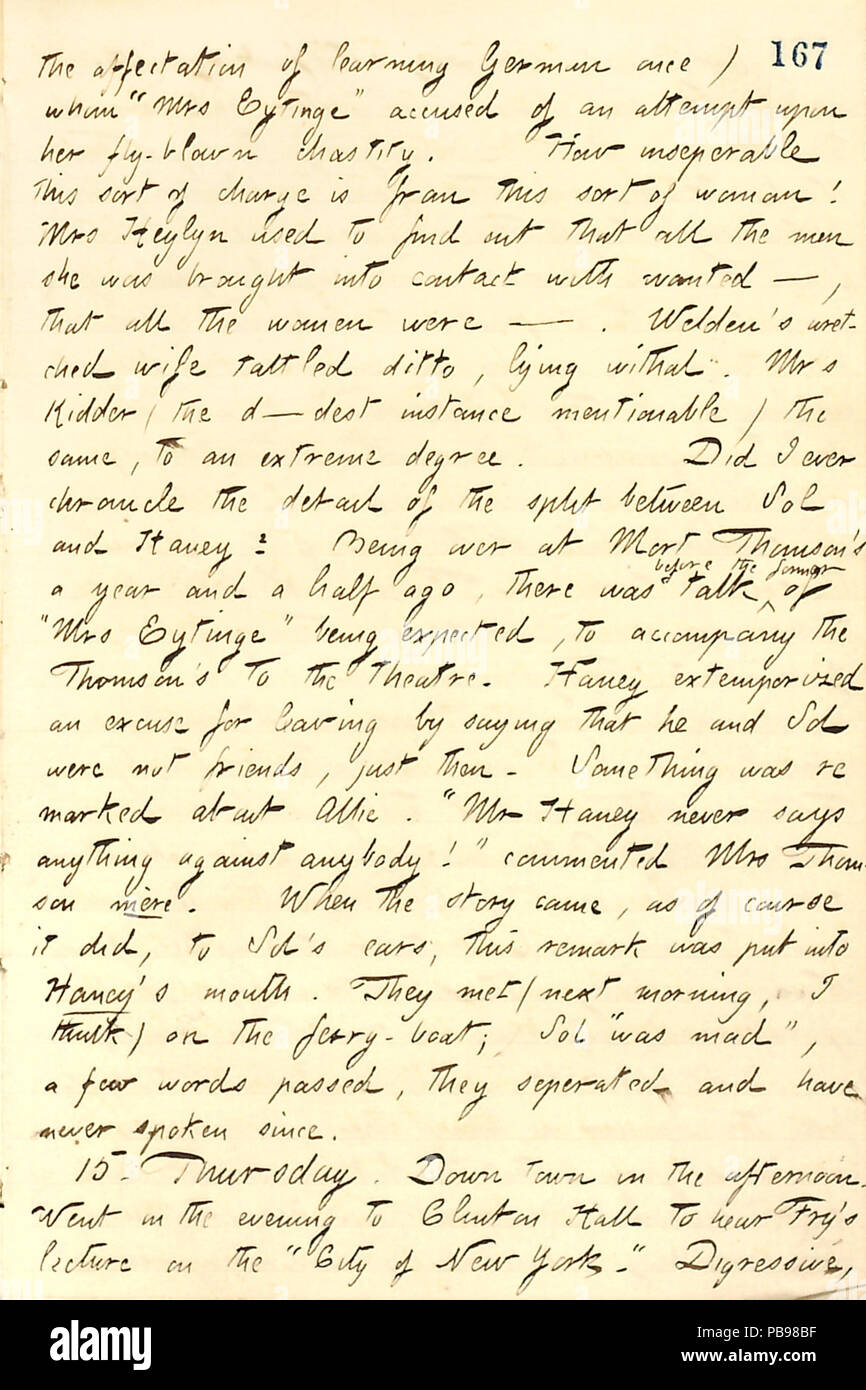 167
the affectation of learning German once )
whom "Mrs Eytinge" accused of an attempt upon
her fly-blown chastity. How inseperable
this sort of charge is from this sort of woman!
Mrs Heylyn used to find out that all the men
she was brought into contact with wanted —,
that all the women were — . Welden's wret-
ched wife tattled ditto, lying withal. Mrs
Kidder ( the d—dest instance mentionable ) the
same, to an extreme degree. Did I ever
chronicle the detail of the split between Sol
and Haney? Being over at Mort Thomson's
before the former
a year and a half ago, there was talk ^ of
"Mrs Eytinge" being expected, to accompany the
Thomson's to the theatre. Haney extemporized
an excuse for leaving by saying that he and Sol
were not friends, just then. Something was re
marked about Allie. "Mr Haney never says
anything against anybody!" commented Mrs Thom-
son mère. When the story came, as of course
it did, to Sol's ears, this remark was put into
Haney's mouth. They met ( next morning, I
think ) on the ferry-boat; Sol "was mad",
a few words passed, they seperated and have
never spoken since.
15. Thursday. Down town in the afternoon.
Went in the evening to Clinton Hall to hear Fry's
lecture on the "City of New York." Digressive,
alamy
Image ID: PB98BF
www.alamy.com